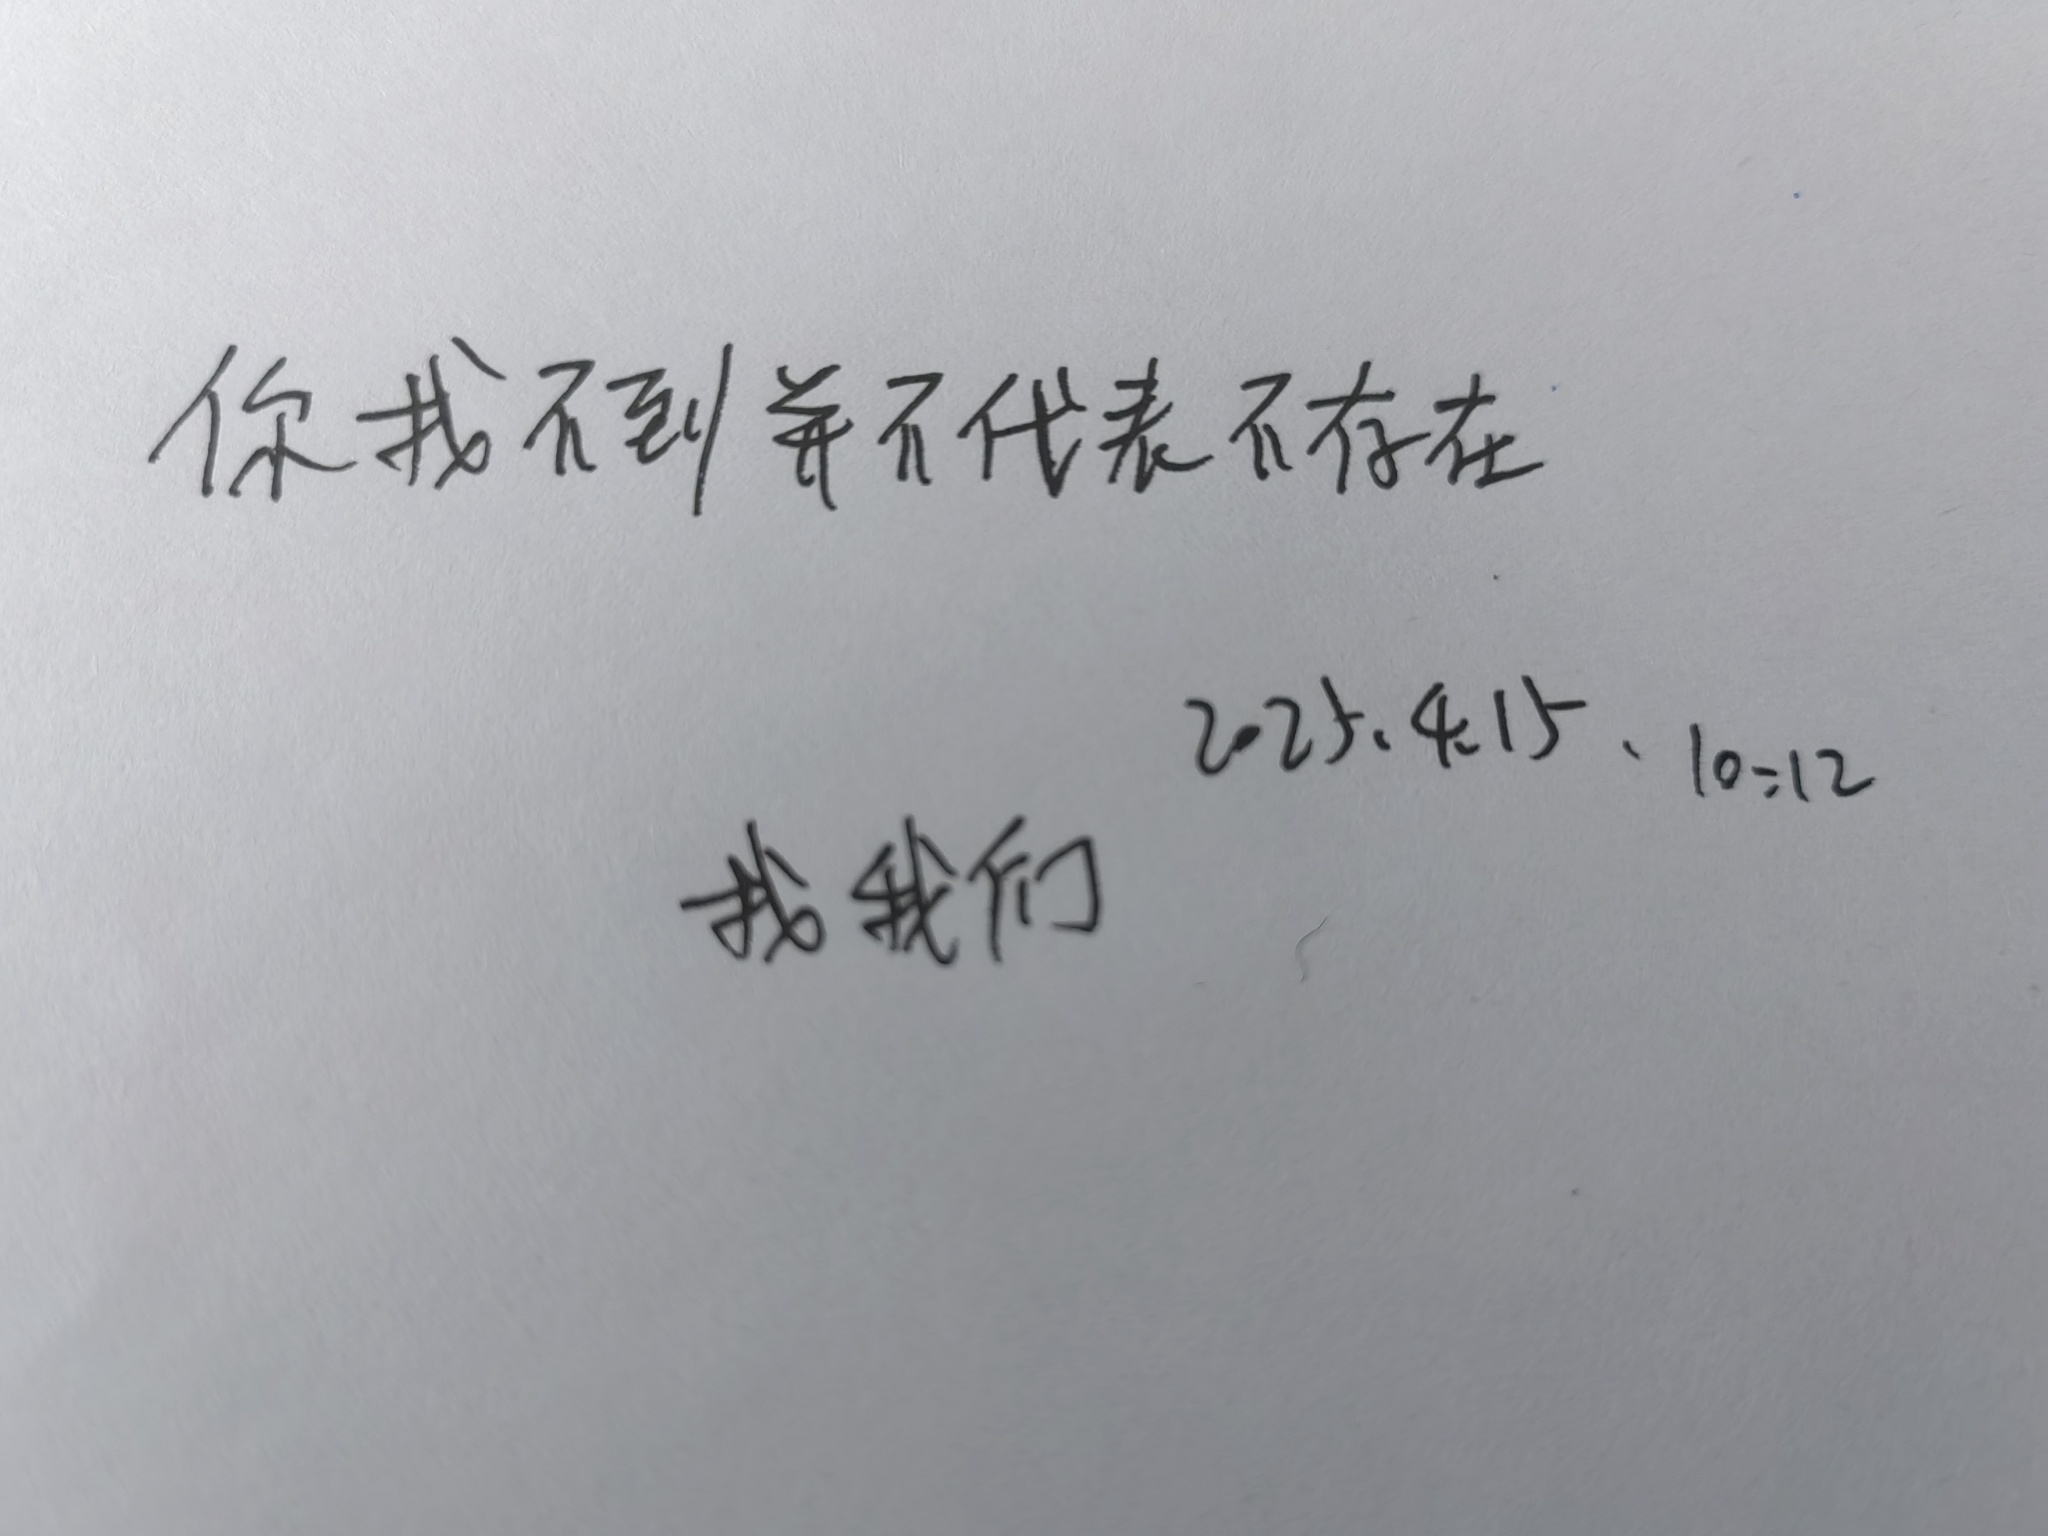 你找不到并不代表不存在
2025.4.15、10:12
找我们